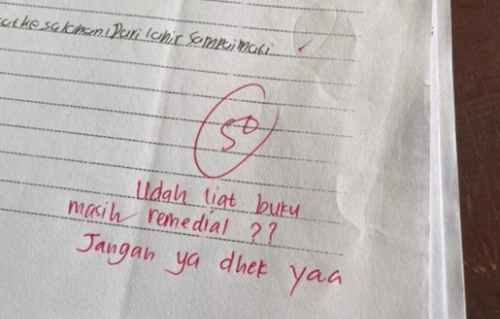 Dari lahir sampai mati
50
Udah liat buku
masih remedial ??
Jangan ya dhek yaa